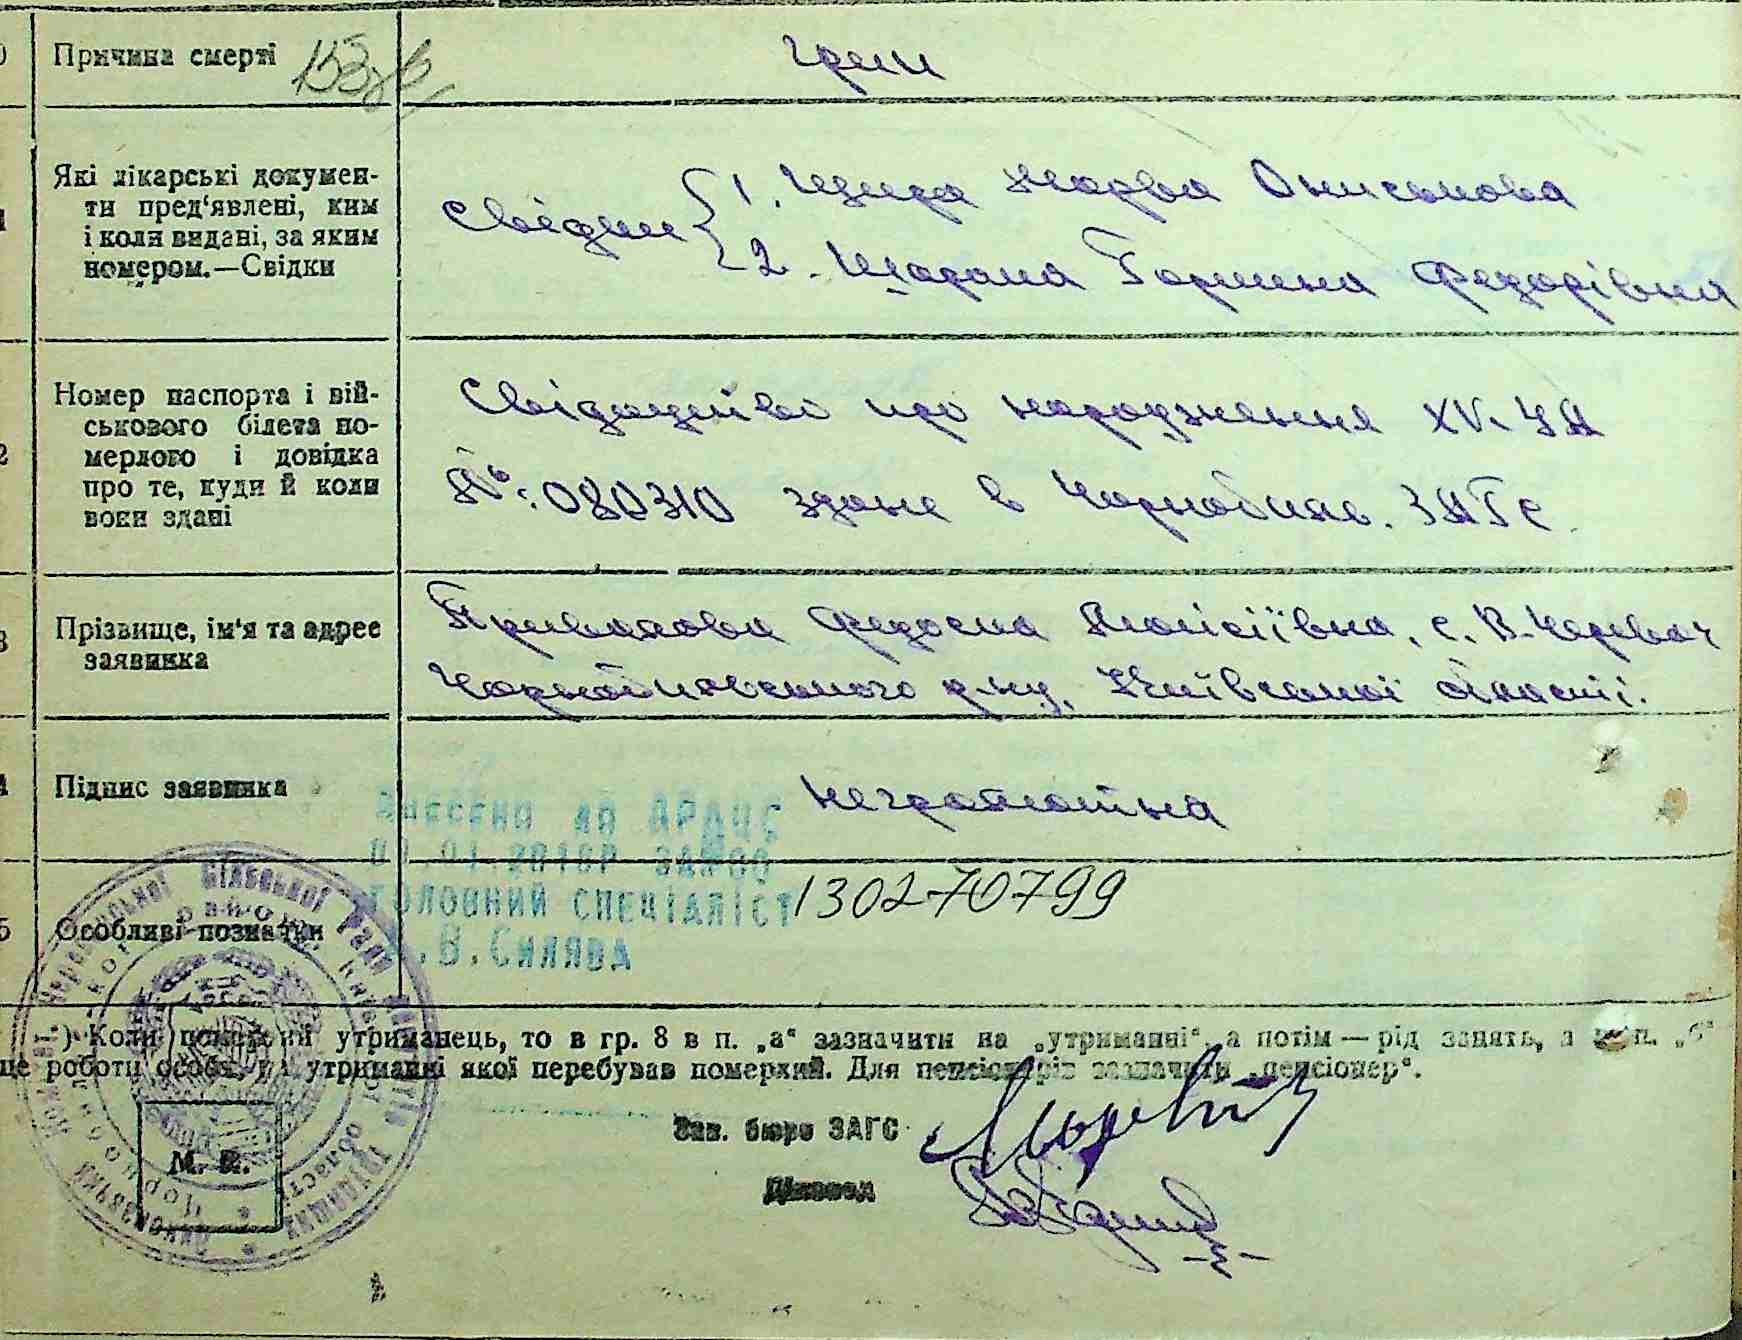 Причина смерті
грип
Які лікарські докумен-
ти пред'явлені, ким
і коли видані, за яким
номером.—Свідки
Свідки 1. Щира Марва Ониськова
2. Шарама Горпина Федорівна
Номер паспорта і вій-
ськового білета по-
мерлого і довідка
про те, куди й коли
вони здані
Свідоцтво про народження XV. УЯ
№: 080310 здане в Чорнобиль. ЗАГС
Прізвище, ім'я та адрес
заявника
Приванова Федосна Мойсіївна, с. В. Черевач
Чорнобильського р-ну, Київської області.
Підпис заявника
неграмотна
Внесено до АРАЦС
ГОЛОВНИЙ СПЕЦІАЛІСТ
.В.Силява
13027 0799
Особливі позначки
Коли померлий утриманець, то в гр. 8 в п. „а" зазначити на „утриманні", а потім — рід занять, а в п. „б"
це роботи особи, на утриманні якої перебував померлий. Для пенсіонерів зазначити „пенсіонер".
Зав. бюро ЗАГС
Діловод
М. П.